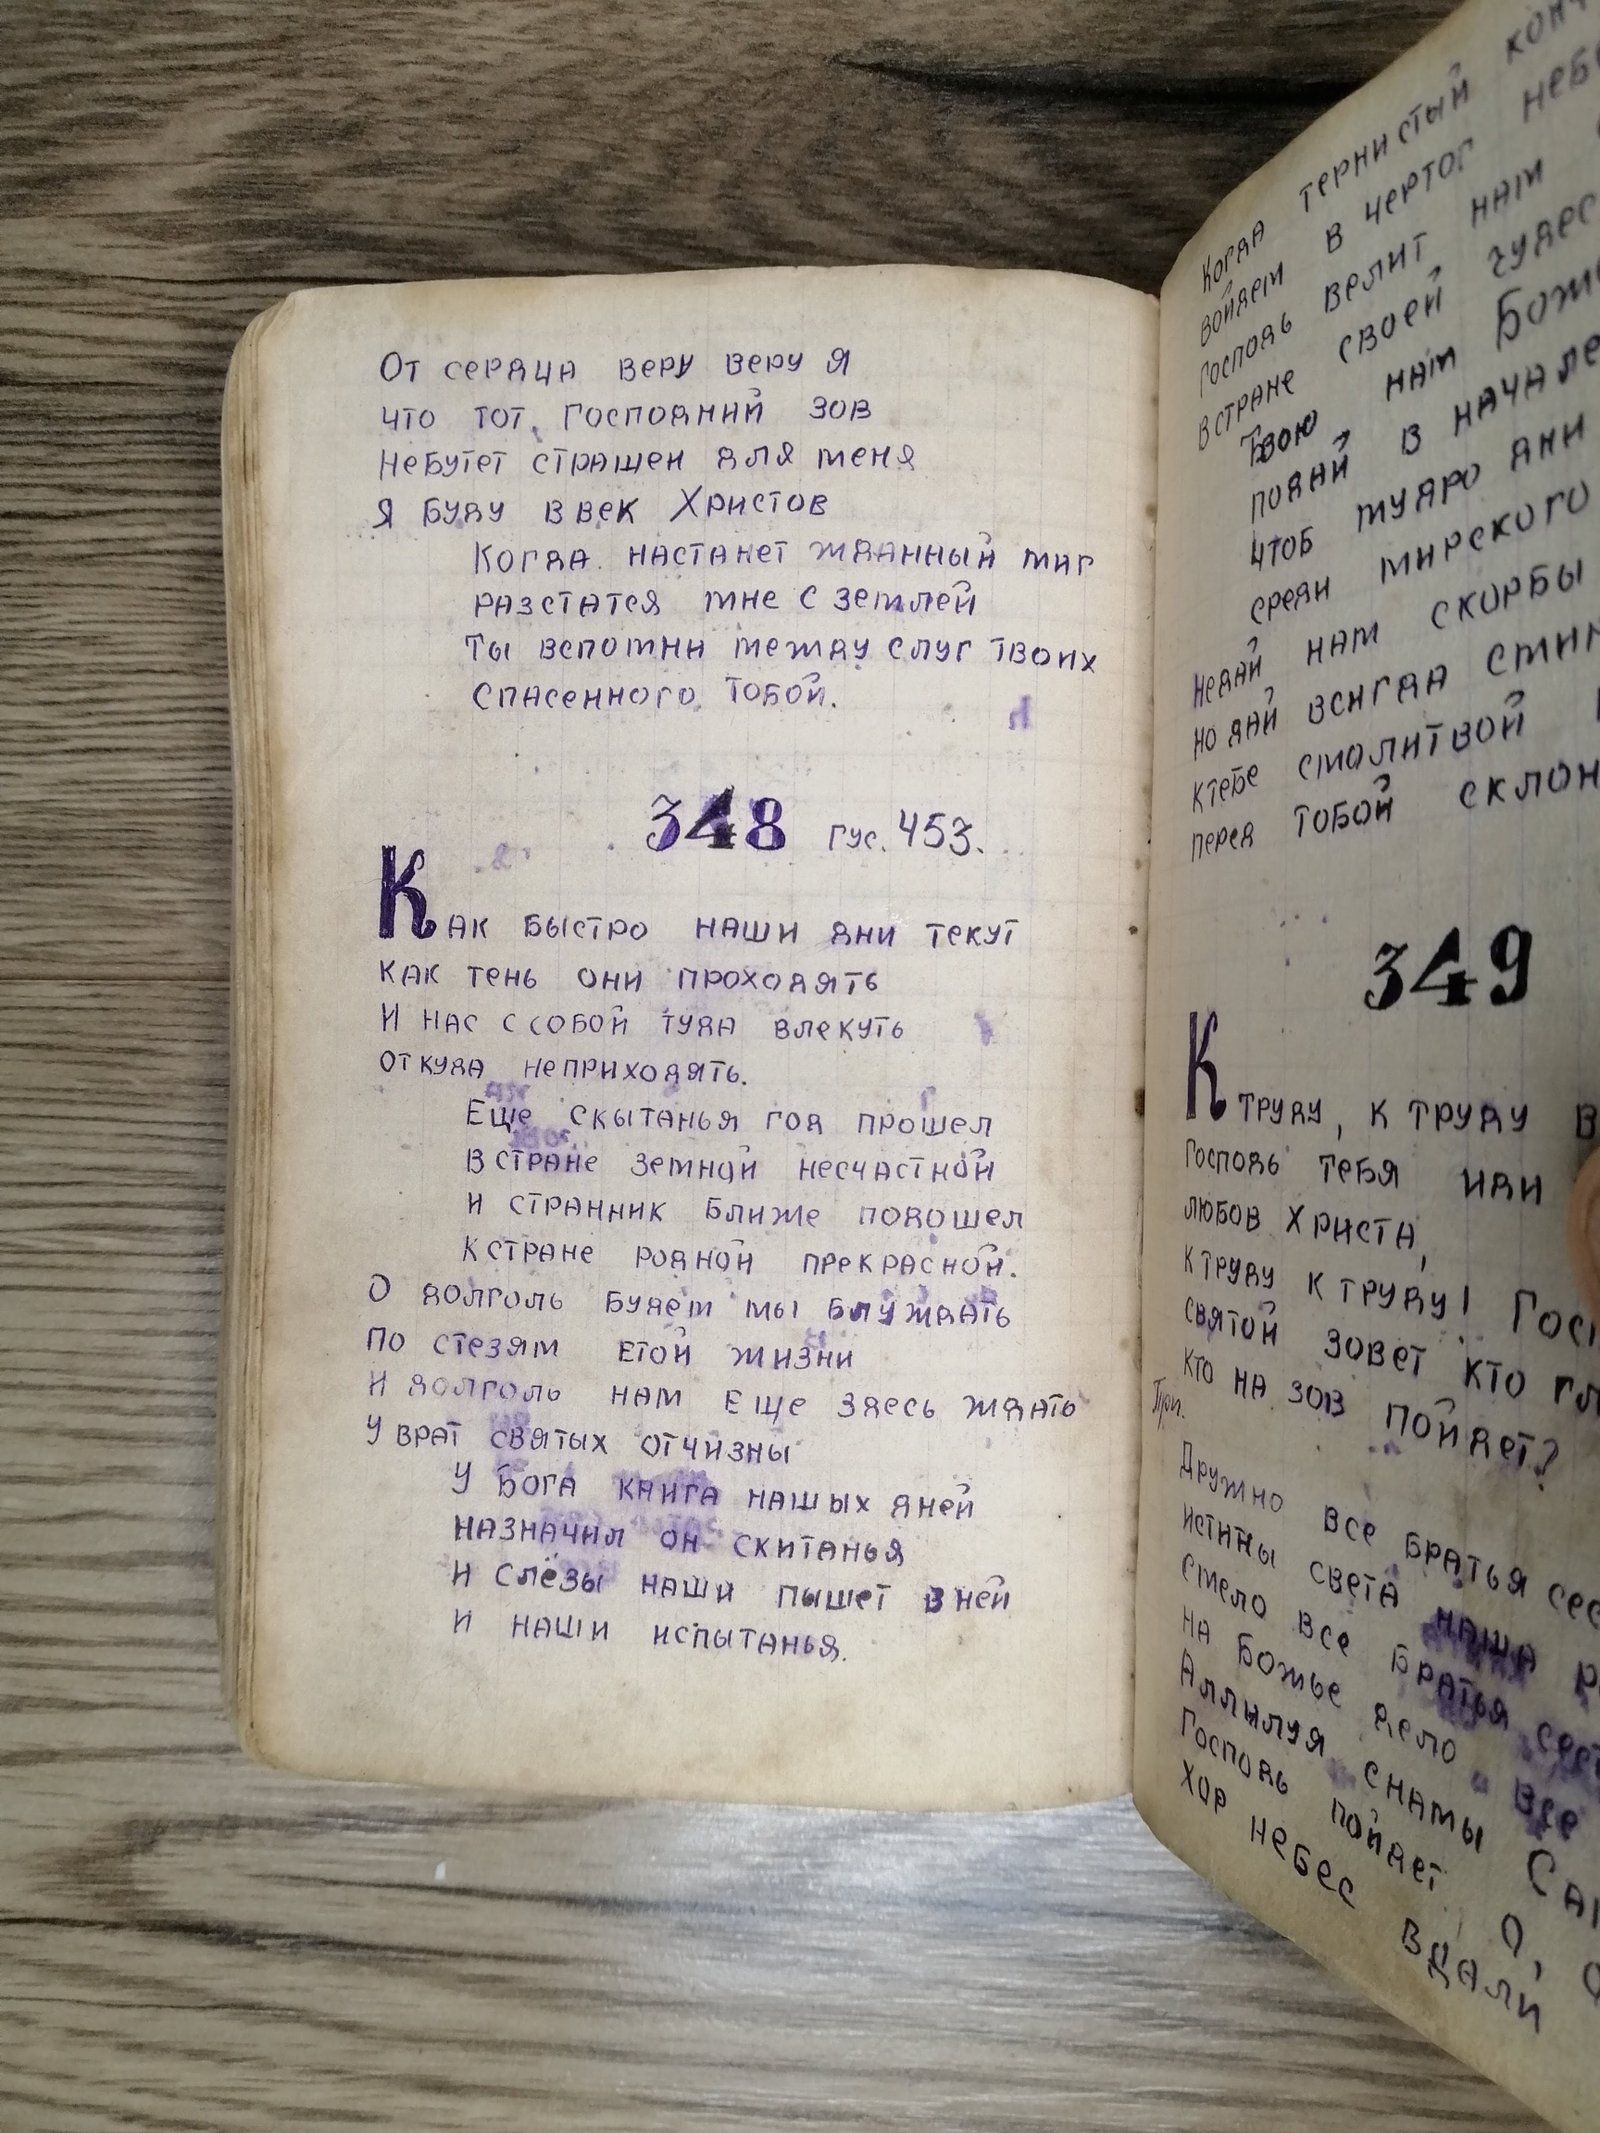 От сердца веру веру я
что тот господний зов
небутет страшен для меня
я буду ввек Христов
Когда настанет жданный миг
разстатся мне с землей
Ты вспомни между слуг твоих
спасенного тобой.
348 гус. 453.
Как быстро наши дни текут
как тень они проходять
И нас ссобой туда влекуть
откуда неприходять.
Еще скытанья год прошел
в стране земной несчастной
и странник ближе подошел
к стране родной прекрасной.
О долголь будем мы блуждать
по стезям етой жизни
и долголь нам еще здесь ждать
у врат святых отчизны
У Бога книга нашых дней
назначил он скитанья
и слёзы наши пышет в ней
и наши испытанья.
Когда тернистый
войдем в чертог
господь велит нам
встране своей чудес
Твою нам
подай в начале
чтоб мудро дни
среди мирского
недай нам скорбы
но дай всигда
ктебе смолитвой
перед тобой
349
К труду, к труду
Господь тебя иди
любов христа,
к труду к труду!
святой зовет кто
кто на зов пойдет?
При.
Дружно все братья
истины света наша
смело все братья
на Божье дело все
Аллилуя снамы
Господь пойдет О,
хор небес вдали